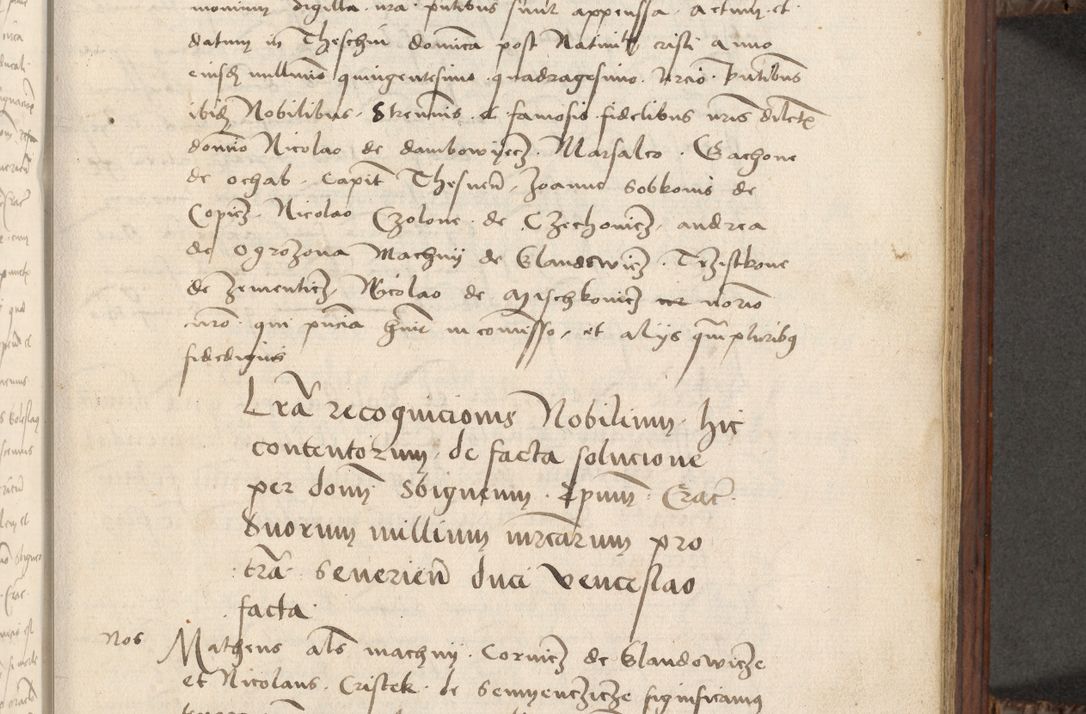 monium sigilla nra pntibus sunt appenssa Actum et
datum in Theschin domica post Natiuit cristi anno
eiusd millimo quingentesimo quadragesimo tercio pntibus
ibid Nobilibus Strennis et famosis fidelibus nris dilect
domino Nicolao de dambowijecz Marsalco Gachone
de ochab Capit Thesnen Joanne Sobkonis de
Copicz Nicolao Czolone de Czechonicz andrea
de Ogrozona Machnij de Glandowicz Trzistkone
de Zementicz Nicolao de Mischkonicz et notrio
nro qui pncia hnit in comisso et alijs qm pluribus
fidedignis
Lra recognicionis Nobilium hic
contentorum de facta solucione
per domi Sbigneum Epum Crac
Duorum millium mrcarum pro
tra Seuerien duci Venceslao
facta
Nos Matheus als machnij Cornicz de Glandowicze
et Nicolaus Cristek de Semyenczicze significamus